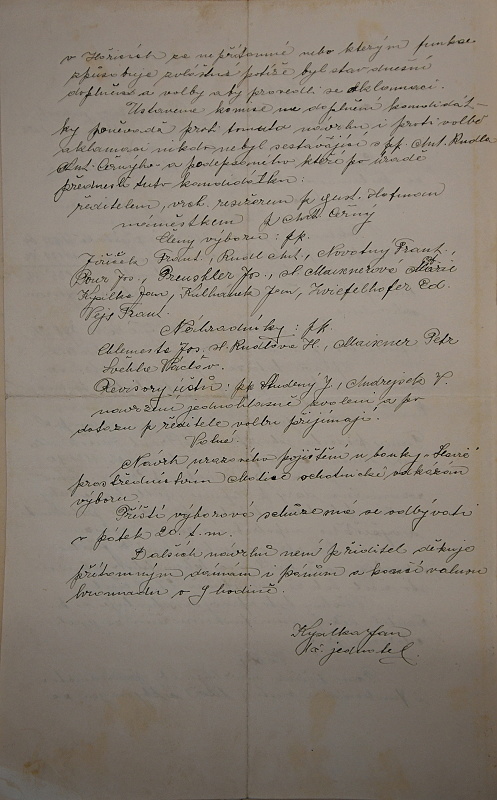 v Hořicích za nepřítomné nebo kterým funkce
způsobuje zvláštní potíže byl stav dnešní
doplněn a volby aby provedli se aklamací.
Ustavena komise na doplnění kandidát-
ky poněvadž proti tomuto návrhu i proti volbě
aklamací nikdo nebyl sestávající z pp. Ant. Rudla
Ant. Černýho a podepsaného kteří po úradě
přednesli tuto kandidátku:
ředitelem, vrch. revisorem p. Gust. Hofman
náměstkem p. Ant. Černý
Členy výboru: pp.
Jiřiček Frant., Rudl Ant., Novotný Frant.,
Pour Jos., Preuskler Jos., sl. Maixnerová Marie
Kysilka Jan, Kulhánek Jan, Zwiefelhofer Ed.
Vejs Frant.
Náhradníky: pp.
Klemente Jos. sl. Rudlová H., Maixner Petr
Světlík Václav.
Revisory účtů: pp. Studený J., Andrejsek V.
navržení jednohlasně zvoleni a po
dotazu p. ředitele volbu přijímají.
Volné.
Návrh úrazového pojištění u banky „Slavie"
prostřednictvím Matice ochotnické odkázán
výboru.
Příští výborová schůze má se odbývati
v pátek 20. t. m.
Dalších návrhů není p. ředitel děkuje
přítomným dámám i pánům a končí valnou
hromadu o 9 hodině.
Kysilka Jan
t. č. jednatel.